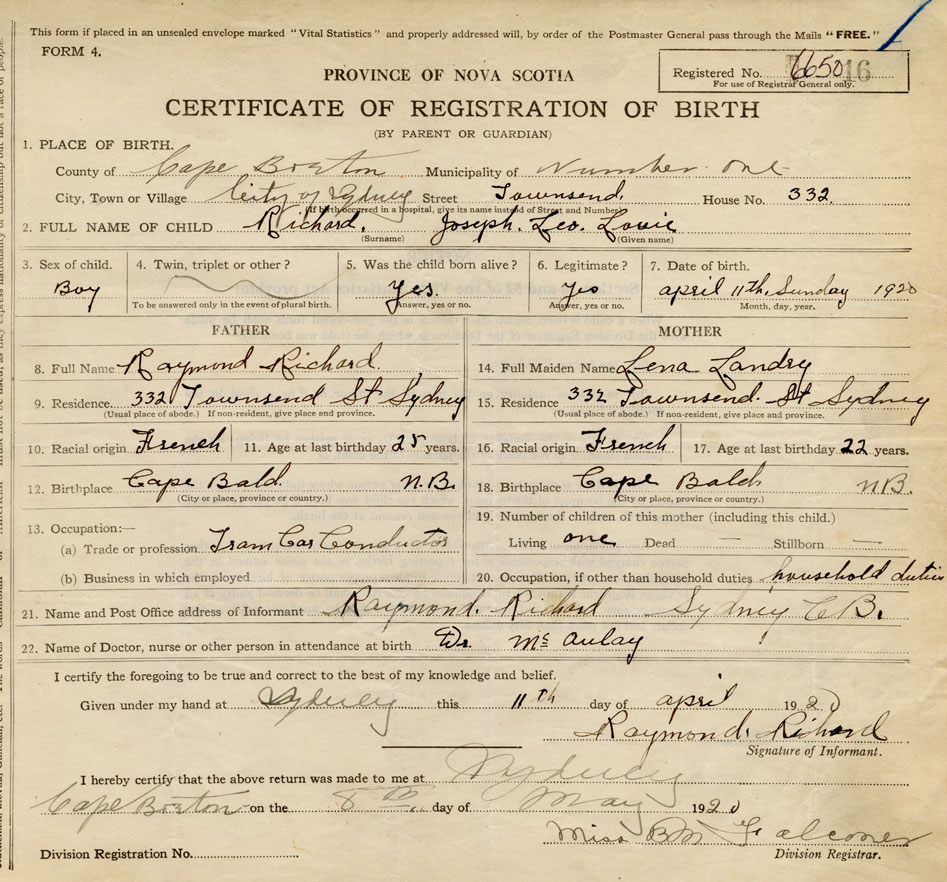 This form if placed in an unsealed envelope marked "Vital Statistics" and properly addressed will, by order of the Postmaster General pass through the Mails "FREE."
FORM 4.
Registered No. 6650 16
For use of Registrar General only.
PROVINCE OF NOVA SCOTIA
CERTIFICATE OF REGISTRATION OF BIRTH
(BY PARENT OR GUARDIAN)
1. PLACE OF BIRTH.
County of Cape Breton Municipality of Number one
City, Town or Village City of Sydney Street Townsend. House No. 332.
(If birth occurred in a hospital, give its name instead of Street and Number)
2. FULL NAME OF CHILD Richard. Joseph. Leo. Louie
(Surname) (Given name)
3. Sex of child. 4. Twin, triplet or other? 5. Was the child born alive? 6. Legitimate? 7. Date of birth.
Boy Yes. Yes april 11th, Sunday 1920
To be answered only in the event of plural birth. Answer, yes or no. Answer, yes or no. Month, day, year.
FATHER MOTHER
8. Full Name Raymond Richard. 14. Full Maiden Name Lena Landry
9. Residence. 332 Townsend St Sydney 15. Residence 332 Townsend St Sydney
(Usual place of abode.) If non-resident, give place and province. (Usual place of abode.) If non-resident, give place and province.
10. Racial origin French 11. Age at last birthday 25 years. 16. Racial origin French 17. Age at last birthday 22 years.
12. Birthplace Cape Bald. N.B. 18. Birthplace Cape Bald N.B.
(City or place, province or country.) (City or place, province or country.)
13. Occupation:— 19. Number of children of this mother (including this child.)
(a) Trade or profession Tram Car Conductor Living one Dead — Stillborn —
(b) Business in which employed 20. Occupation, if other than household duties household duties
21. Name and Post Office address of Informant Raymond. Richard Sydney C.B.
22. Name of Doctor, nurse or other person in attendance at birth Dr. Mc Aulay
I certify the foregoing to be true and correct to the best of my knowledge and belief.
Given under my hand at Sydney this 11th day of april 1920
Raymond. Richard
Signature of Informant.
I hereby certify that the above return was made to me at Sydney
Cape Breton on the 8th day of May 1920
Miss B M Falconer
Division Registration No. Division Registrar.